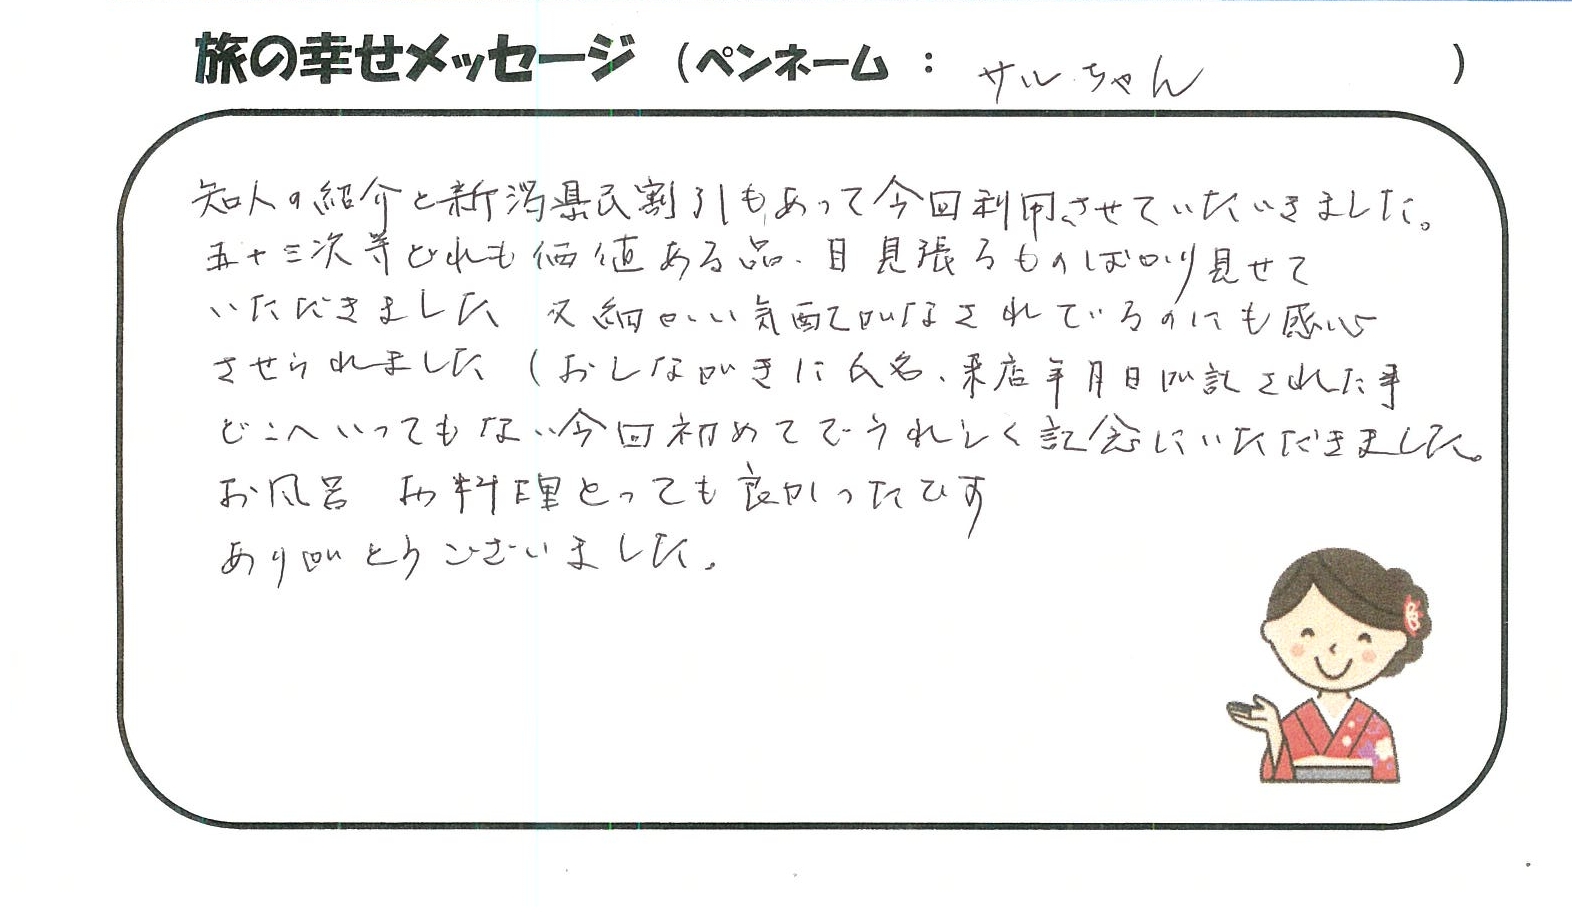 旅の幸せメッセージ （ペンネーム ： サルちゃん ）
知人の紹介と新潟県民割引もあって今回利用させていただきました。
五十三次等どれも価値ある品、目見張るものばかり見せて
いただきました 又細かい気配りがなされているのにも感心
させられました （おしながきに氏名、来店年月日が記された事
どこへいってもない今回初めてでうれしく記念にいただきました。
お風呂 お料理とっても良かったです
ありがとうございました。